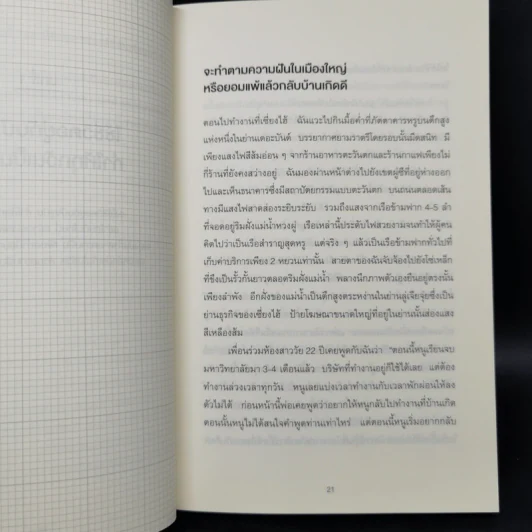 จะทำตามความฝันในเมืองใหญ่
หรือยอมแพ้แล้วกลับบ้านเกิดดี
ตอนไปทำงานที่เซี่ยงไฮ้ ฉันแวะไปกินมื้อค่ำที่ภัตตาคารหรูบนตึกสูง
แห่งหนึ่งในย่านเดอะบันด์ บรรยากาศยามราตรีโดยรอบนั้นมืดสนิท มี
เพียงแสงไฟสีส้มอ่อน ๆ จากร้านอาหารตะวันตกและร้านกาแฟเพียงไม่
กี่ร้านที่ยังคงสว่างอยู่ ฉันมองผ่านหน้าต่างไปยังเขตผู่ซีที่อยู่ห่างออก
ไปและเห็นธนาคารซึ่งมีสถาปัตยกรรมแบบตะวันตก บนถนนตลอดเส้น
ทางมีแสงไฟสาดส่องระยิบระยับ รวมถึงแสงจากเรือข้ามฟาก 4-5 ลำ
ที่จอดอยู่ริมฝั่งแม่น้ำหวงผู่ เรือเหล่านี้ประดับไฟสวยงามจนทำให้ผู้คน
คิดไปว่าเป็นเรือสำราญสุดหรู แต่จริง ๆ แล้วเป็นเรือข้ามฟากทั่วไปที่
เก็บค่าบริการเพียง 2 หยวนเท่านั้น สายตาของฉันจับจ้องไปยังโซ่เหล็ก
ที่ขึงเป็นรั้วกั้นยาวตลอดริมฝั่งแม่น้ำ พลางนึกภาพตัวเองยืนอยู่ตรงนั้น
เพียงลำพัง อีกฝั่งของแม่น้ำเป็นตึกสูงตระหง่านในย่านลู่เจียจุ่ยซึ่งเป็น
ย่านธุรกิจของเซี่ยงไฮ้ ป้ายโฆษณาขนาดใหญ่ที่อยู่ในย่านนั้นส่องแสง
สีเหลืองส้ม
เพื่อนร่วมห้องสาววัย 22 ปีเคยพูดกับฉันว่า "ตอนนี้หนูเรียนจบ
มหาวิทยาลัยมา 3-4 เดือนแล้ว บริษัทที่ทำงานอยู่ก็ใช้ได้เลย แต่ต้อง
ทำงานล่วงเวลาทุกวัน หนูเลยแบ่งเวลาทำงานกับเวลาพักผ่อนให้ลง
ตัวไม่ได้ ก่อนหน้านี้พ่อเคยพูดว่าอยากให้หนูกลับไปทำงานที่บ้านเกิด
ตอนนั้นหนูไม่ได้สนใจคำพูดท่านเท่าไหร่ แต่ตอนนี้หนูเริ่มอยากกลับ
21